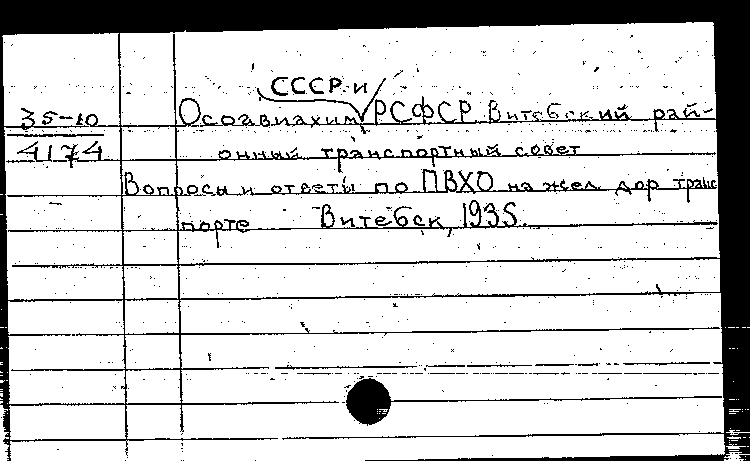 СССР и
35-10 Осоавиахим РСФСР Витебский рай-
4174 онный транспортный совет
Вопросы и ответы по ПВХО на жел дор транс
порте Витебск, 1935.